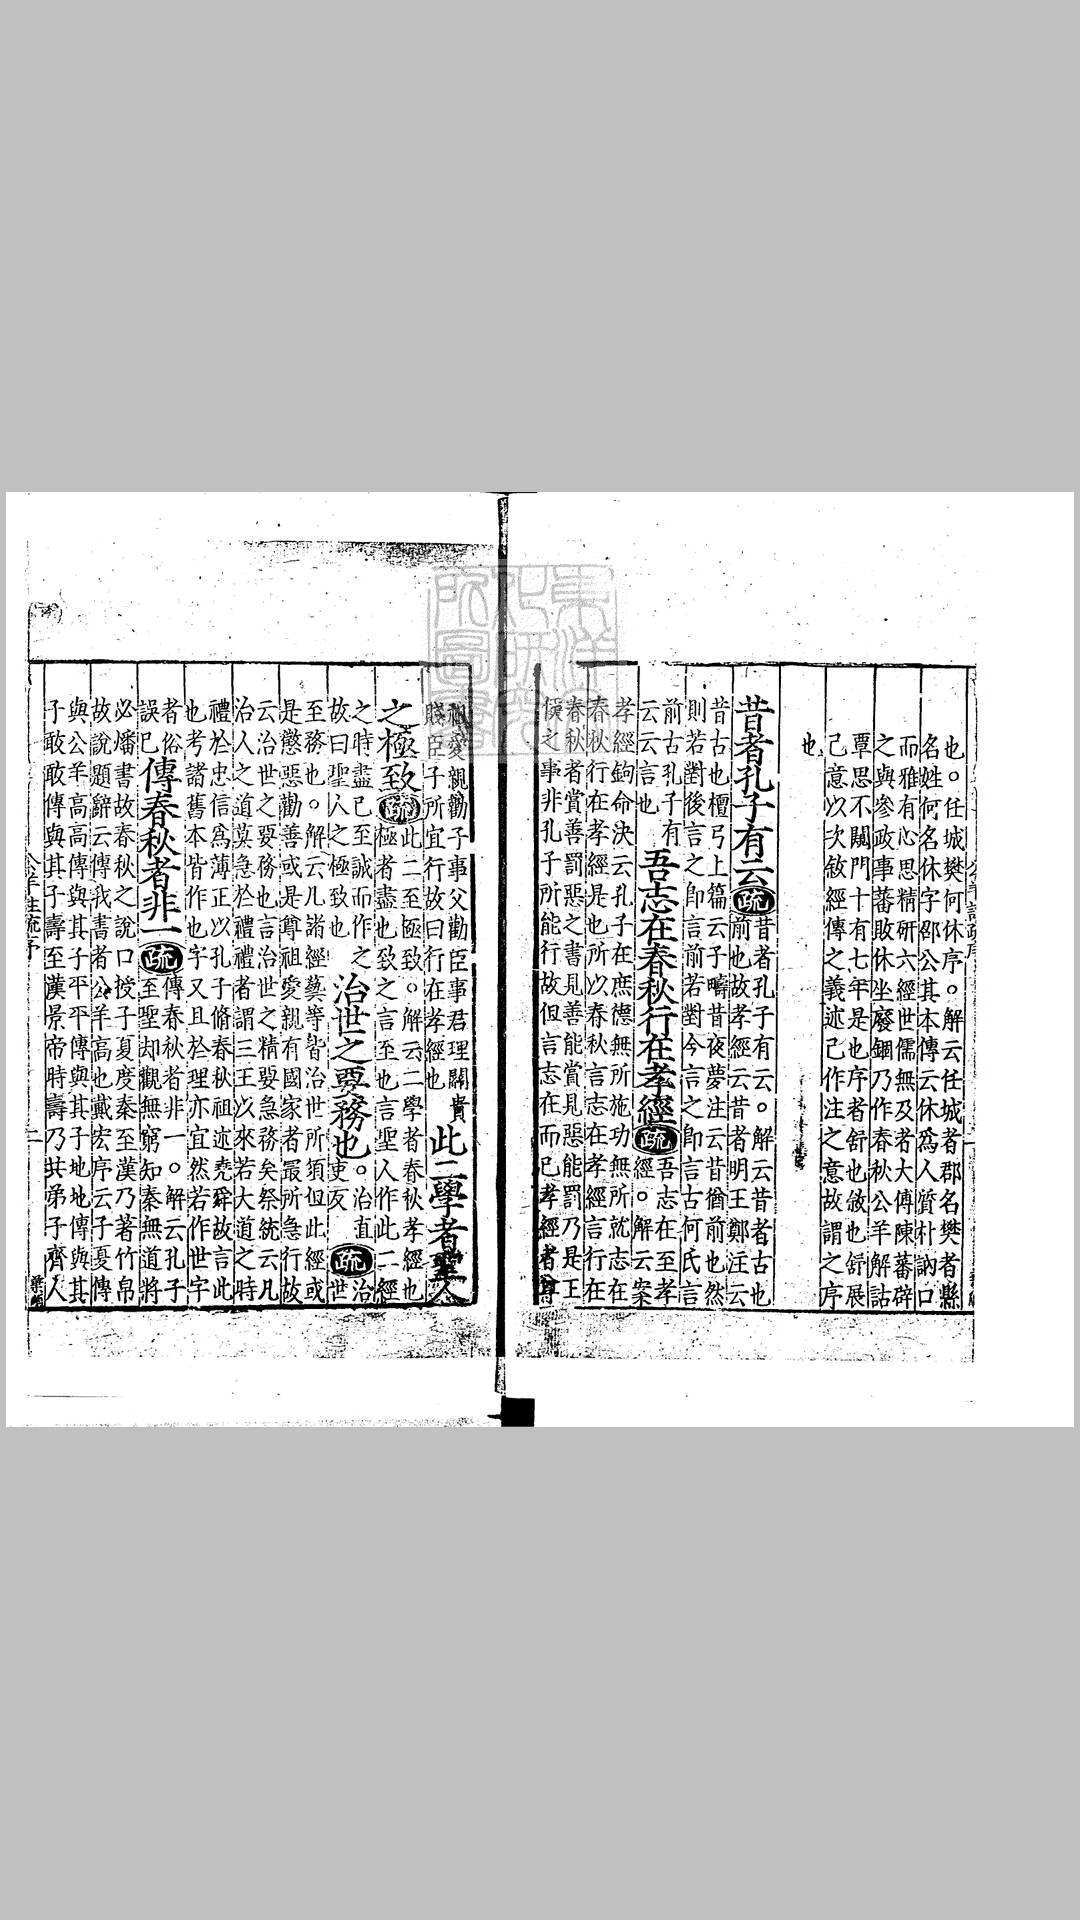 也。任城樊何休序。解云任城者郡名樊者縣
名姓何名休字邵公其本傳云休爲人質朴訥口
而雅有心思精研六經世儒無及者大傅陳蕃辟
之與參政事蕃敗休坐廢錮乃作春秋公羊解詁
覃思不闚門十有七年是也序者舒也敘也舒展
己意以次敘經傳之義述己作注之意故謂之序
也
昔者孔子有云
疏
昔者孔子有云。解云昔者古也
前也故孝經云昔者明王鄭注云
昔古也檀弓上篇云子疇昔夜夢注云昔猶前也然
則若對後言之即言前若對今言之即言古何氏言
前古孔子有
云云言也
吾志在春秋行在孝經
疏
吾志在至孝
經。解云案
孝經鉤命決云孔子在庶德無所施功無所就志在
春秋行在孝經是也所以春秋言志在孝經言行在
春秋者賞善罰惡之書見善能賞見惡能罰乃是王
侯之事非孔子所能行故但言志在而已孝經者尊
祖愛親勸子事父勸臣事君理關貴
賤臣子所宜行故曰行在孝經也
此二學者聖人
之極致
疏
此二至極致。解云二學者春秋孝經也
極者盡也致之言至也言聖人作此二經
之時盡已至誠而作之
故曰聖人之極致也
治世之要務也
。治直
吏反
疏
治
世
至務也。解云凡諸經藝等皆治世所須但此經或
是懲惡勸善或是尊祖愛親有國家者最所急行故
云治世之要務也言治世之精要急務矣祭統云凡
治人之道莫急於禮禮者謂三王以來若大道之時
禮於忠信爲薄正以孔子脩春秋祖述堯舜故言此
也考諸舊本皆作也字又且於理亦宜然若作世字
者俗
誤已
傳春秋者非一
疏
傳春秋者非一。解云孔子
至聖却觀無窮知秦無道將
必燔書故春秋之說口授子夏度秦至漢乃著竹帛
故說題辭云傳我書者公羊高也戴宏序云子夏傳
與公羊高高傳與其子平平傳與其子地地傳與其
子敢敢傳與其子壽至漢景帝時壽乃共弟子齊人